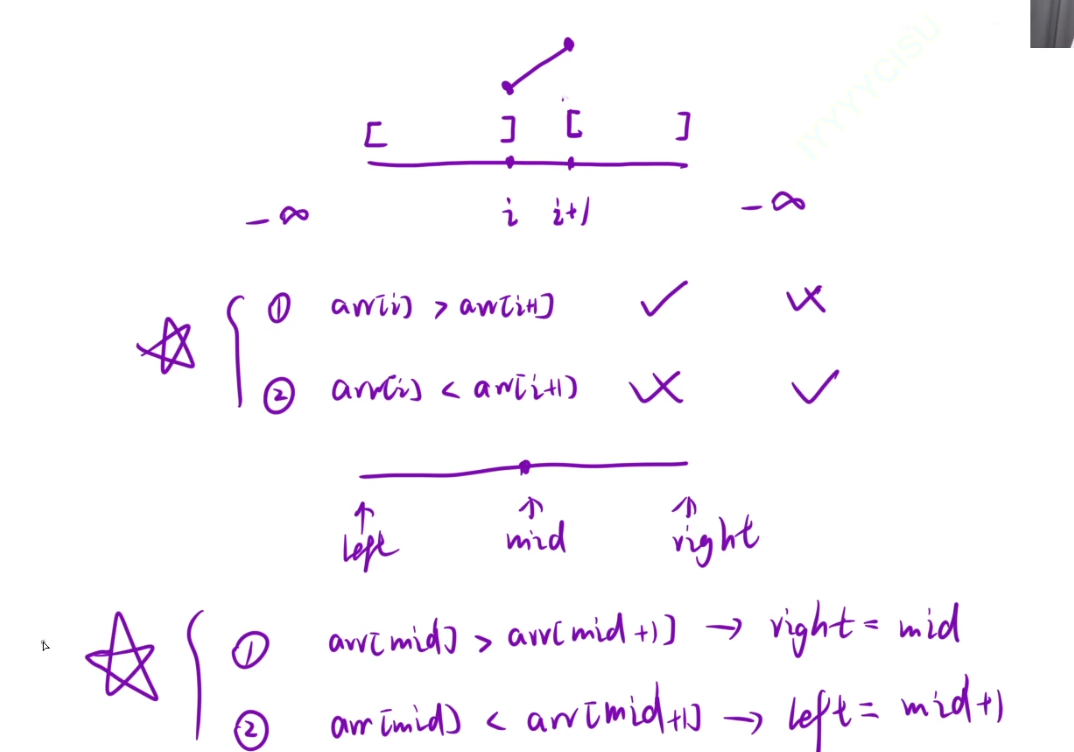 [ ] [ ]
-∞ i i+1 -∞
① arr[i] > arr[i+1] ✓ ×
② arr[i] < arr[i+1] × ✓
left mid right
① arr[mid] > arr[mid+1] → right = mid
② arr[mid] < arr[mid+1] → left = mid+1